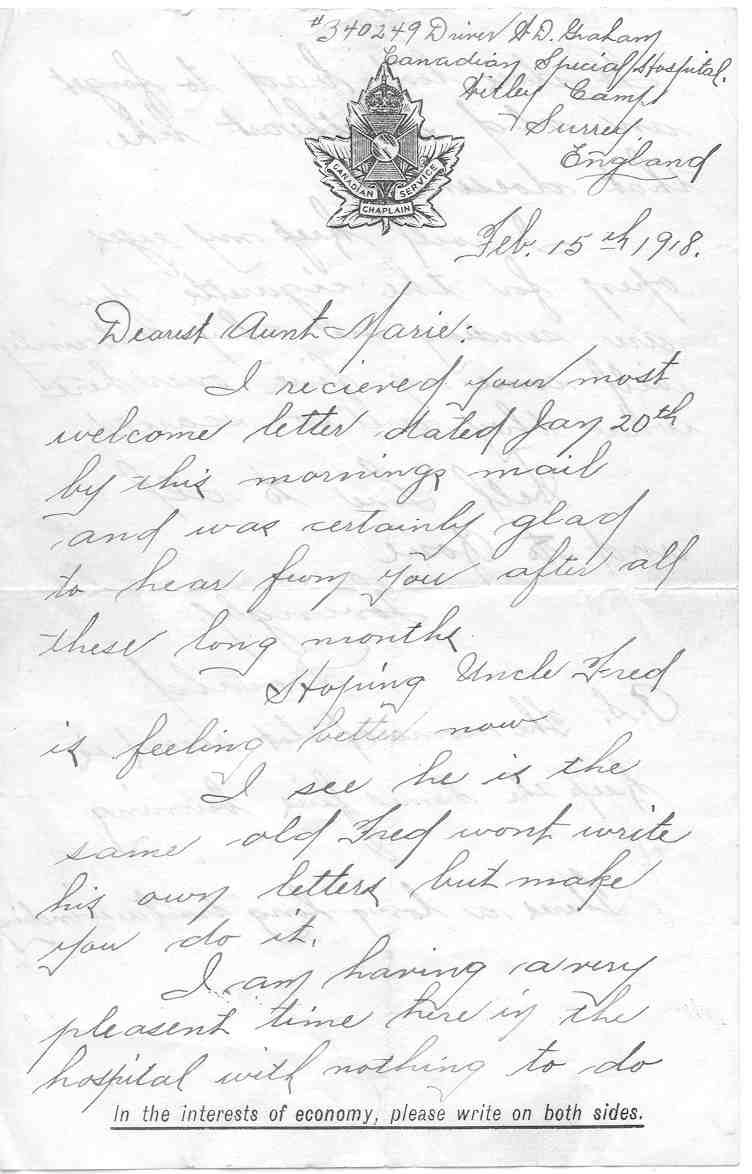 #340249 Driver H D. Graham
Canadian Special Hospital.
Witley Camp
Surrey
England
CANADIAN SERVICE
CHAPLAIN
Feb. 15th 1918.
Dearest Aunt Marie:
I recieved your most
welcome letter dated Jan 20th
by this mornings mail
and was certainly glad
to hear from you after all
these long months
Hoping Uncle Fred
is feeling better now
I see he is the
same old Fred wont write
his own letters but make
you do it.
I am having a very
pleasent time here in the
hospital with nothing to do
In the interests of economy, please write on both sides.